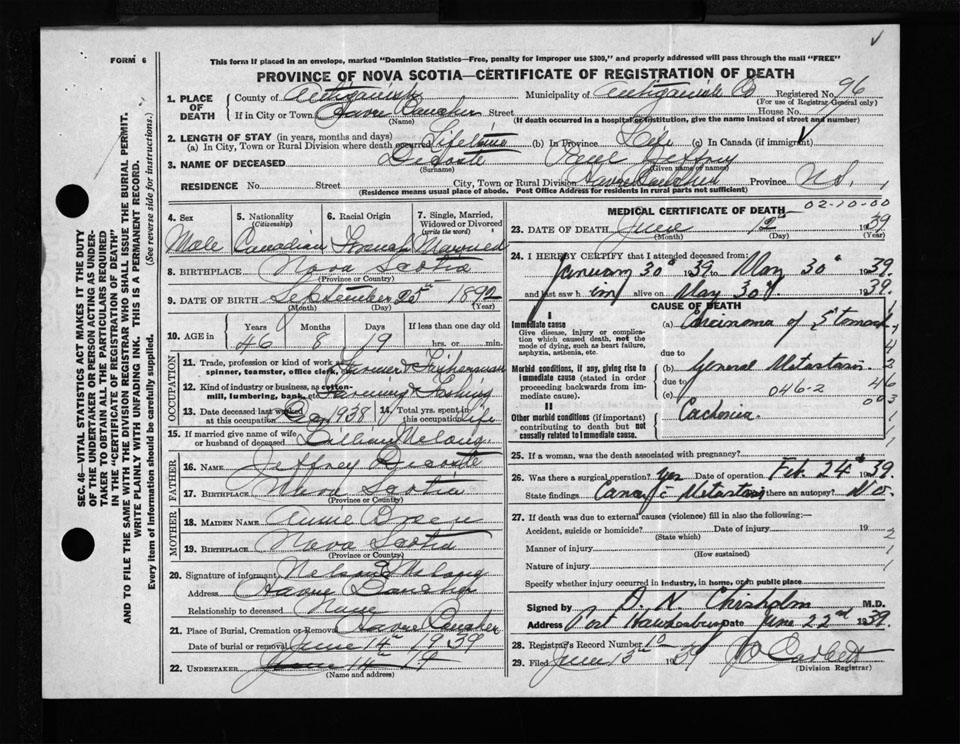 FORM 6
This form if placed in an envelope, marked "Dominion Statistics—Free, penalty for improper use $300," and properly addressed will pass through the mail "FREE"
PROVINCE OF NOVA SCOTIA—CERTIFICATE OF REGISTRATION OF DEATH
1. PLACE OF DEATH County of Antigonish Municipality of Antigonish Co Registered No. 96
(For use of Registrar General only)
If in City or Town Havre Boucher Street House No.
(Name) (If death occurred in a hospital or institution, give the name instead of street and number)
2. LENGTH OF STAY (in years, months and days)
(a) In City, Town or Rural Division where death occurred Lifetime (b) In Province Life (c) In Canada (if immigrant)
3. NAME OF DECEASED DeCoste Jeffrey
(Surname) (Given name or names)
RESIDENCE No. Street City, Town or Rural Division Havre Boucher Province N.S.
(Residence means usual place of abode. Post Office Address for residents in rural parts not sufficient)
4. Sex 5. Nationality (Citizenship) 6. Racial Origin 7. Single, Married, Widowed or Divorced (write the word)
Male Canadian French Married
8. BIRTHPLACE Nova Scotia
(Province or Country)
9. DATE OF BIRTH September 1892
(Month) (Day) (Year)
10. AGE in Years Months Days If less than one day old
46 8 19 hrs. or min.
OCCUPATION
11. Trade, profession or kind of work as spinner, teamster, office clerk, etc. Farmer & Fisherman
12. Kind of industry or business, as cotton-mill, lumbering, bank, etc. Farming & Fishing
13. Date deceased last worked at this occupation 1938 14. Total yrs. spent in this occupation Life
15. If married give name of wife or husband of deceased
FATHER
16. NAME Jeffrey Decoste
17. BIRTHPLACE Nova Scotia
(Province or Country)
MOTHER
18. MAIDEN NAME Annie
19. BIRTHPLACE Nova Scotia
(Province or Country)
20. Signature of informant Nelson
Address Havre Boucher
Relationship to deceased None
21. Place of Burial, Cremation or Removal Havre Boucher
Date of burial or removal June 14th 1939
22. UNDERTAKER
(Name and address)
MEDICAL CERTIFICATE OF DEATH 02-10-00
23. DATE OF DEATH June 12 1939
(Month) (Day) (Year)
24. I HEREBY CERTIFY that I attended deceased from:
January 30th 1939 to May 30th 1939.
and last saw him alive on May 30th 1939.
CAUSE OF DEATH
I
Immediate cause (a) Carcinoma of Stomach
Give disease, injury or complication which caused death, not the mode of dying, such as heart failure, asphyxia, asthenia, etc.
due to
Morbid conditions, if any, giving rise to immediate cause (stated in order proceeding backwards from immediate cause). (b) General Metastasis.
due to
(c) 046-2
II
Other morbid conditions (if important) contributing to death but not causally related to immediate cause. Cachexia.
25. If a woman, was the death associated with pregnancy?
26. Was there a surgical operation? Yes Date of operation Feb. 24th 1939.
State findings Cancer c Metastasis Was there an autopsy? No.
27. If death was due to external causes (violence) fill in also the following:—
Accident, suicide or homicide? Date of injury 19
(State which)
Manner of injury
(How sustained)
Nature of injury
Specify whether injury occurred in industry, in home, or in public place
Signed by D. N. Chisholm M.D.
Address Port Hawkesbury Date June 22nd 1939.
28. Registrar's Record Number 10
29. Filed June 13th 1939
(Division Registrar)
SEC. 46—VITAL STATISTICS ACT MAKES IT THE DUTY
OF THE UNDERTAKER OR PERSON ACTING AS UNDERTAKER
TO OBTAIN ALL THE PARTICULARS REQUIRED
IN THE "CERTIFICATE OF REGISTRATION OF DEATH"
AND TO FILE THE SAME WITH THE DIVISION REGISTRAR WHO SHALL ISSUE THE BURIAL PERMIT.
WRITE PLAINLY WITH UNFADING INK. THIS IS A PERMANENT RECORD.
Every item of information should be carefully supplied. (See reverse side for instructions.)